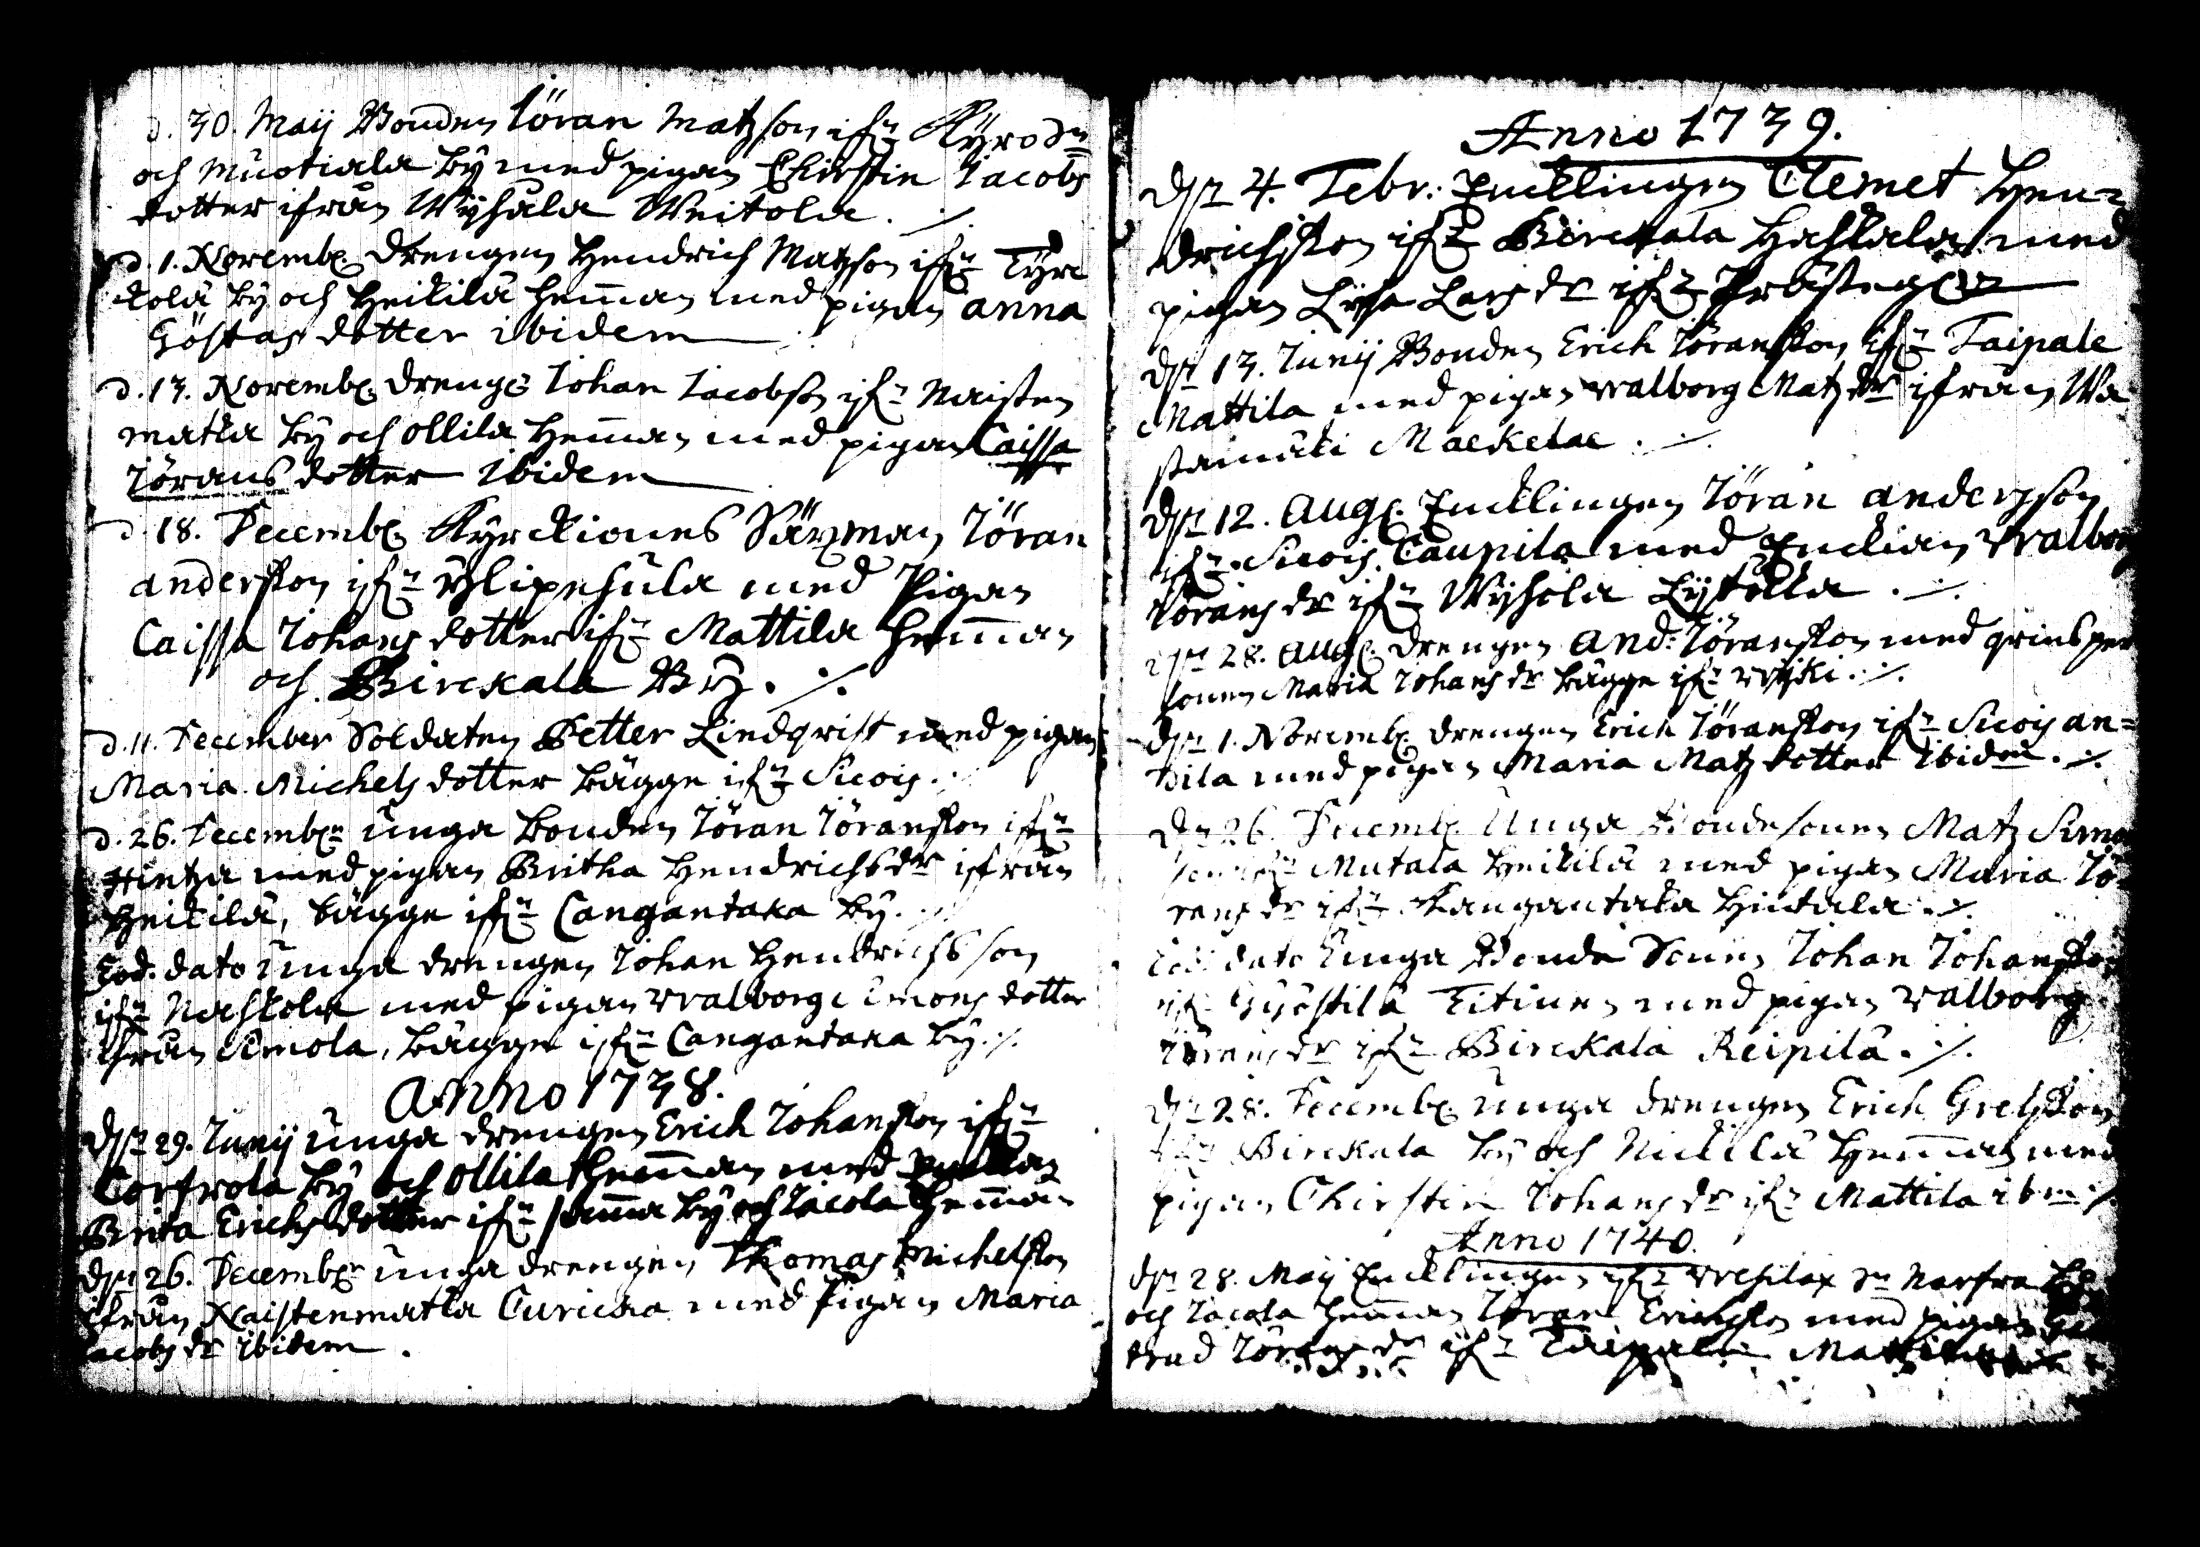 d. 30. Maÿ Bonden Jöran Matzson ifr̄ Kÿro sn
och Muotiala bÿ med pigan Chirstin Jacobs
dotter ifrån Wÿhala Weitola ./.
d. 1. Novemb. drengen Hendrich Matzson ifr̄ Tÿrc
kolä bÿ och Heikilä Heman med pigan Anna
Göstas dotter ibidem
d. 13. Novemb. drengē Johan Jacobson ifr̄ Naisten
matka bÿ och Ollila Heman med pigan Caissa
Jörans dotter ibidem
d. 18. Decemb. Kyrckiones Säxman Jöran
andersson ifr̄ Ylipehula med Pigan
Caissa Johans dotter ifr̄ Mattila Heman
och Birckala Bÿ. ./.
d. 11. December Soldaten Petter Lindqvist med pigan
Maria Michels dotter bägge ifr̄ Siois. ./.
d. 26. Decembr unga bonden Jöran Jöransson ifr̄
Hintza med pigan Britha Hendrichs dr ifrån
Heikilä, bägge ifr̄ Cangantaka bÿ. ./.
Eod. dato unga drengen Johan Hendrichsson
ifr̄ Naskola med pigan Walborg Simons dotter
ifrån Simola, bägge ifr̄ Cangantaka bÿ. ./.
Anno 1738.
dn 29. Junÿ unga drengen Erich Johansson ifr̄
Corfwola bÿ och Ollila Heman med
Brita Erichs dotter ifr̄ samma bÿ och Jacola Heman
dn 26. Decembr unga drengen Thomas Michelsson
ifrån Naistenmatka Curicaa med Pigan Maria
Jacobs dr ibidem.
Anno 1739.
dn 4. Febr. Encklingen Clemet Hen=
drichsson ifr̄ Birckala Haskala med
pigan Lisa Lars dr ifr̄ Präste
dn 13. Junÿ Bonden Erich Jöransson ifr̄ Taipale
Mattila med pigan Walborg Matz dr ifrån Wa
stamäki Maekelae ./.
dn 12. Aug. Encklingen Jöran andersson
ifr̄ Siois Caupila med Enckian Walborg
Jörans dr ifr̄ Wÿhola Lÿtella ./.
dn 28. Aug. drengen And: Jöransson med qvinsper
sonen Maria Johans dr bägge ifr̄ ./.
dn 1. Novemb. drengen Erich Jöransson ifr̄ Siois an=
tila med pigan Maria Matz dotter ibidem ./.
dn 26. Decemb. Unga Bondesonen Matz Simo
son ifr̄ Mutala Heikilä med pigan Maria Jö
rans dr ifr̄ Kangantaka Hintala ./.
Eod. dato Unga Bonde Sonen Johan Johansson
ifr̄ Titinen med pigan Walborg
Jörans dr ifr̄ Birckala Reipilä ./.
dn 28. Decemb. unga drengen Erich Grelsson
ifr̄ Birckala bÿ och Nickilä Heman med
pigan Chirstin Johans dr ifr̄ Mattila ibm ./.
Anno 1740.
dn 28. Maÿ Encklingen ifr̄ Wesilax sn Narfva bÿ
och Jacola Heman Jöran Erichsson med pigan Ger
trud Jörans dr ifr̄ Taipale Mattila